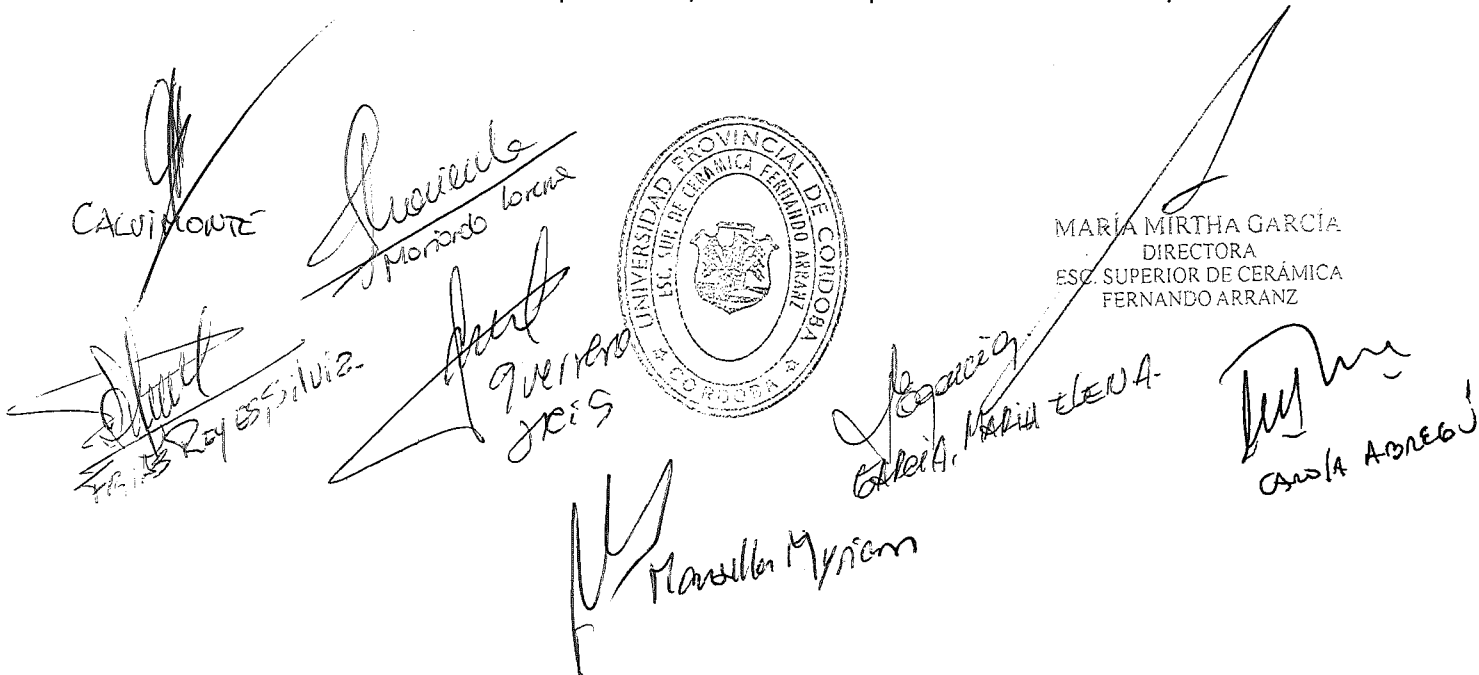 CALVIMONTE
Moriondo Lorena
UNIVERSIDAD PROVINCIAL DE CORDOBA
ESC. SUP. DE CERAMICA FERNANDO ARRANZ
CORDOBA
MARÍA MIRTHA GARCÍA
DIRECTORA
ESC. SUPERIOR DE CERÁMICA
FERNANDO ARRANZ
FRIAS Reyes Silvia-
Guerrero
IRIS
GARCÍA, MARIA ELENA-
CAROLA ABREGÚ
Mansilla Myriam